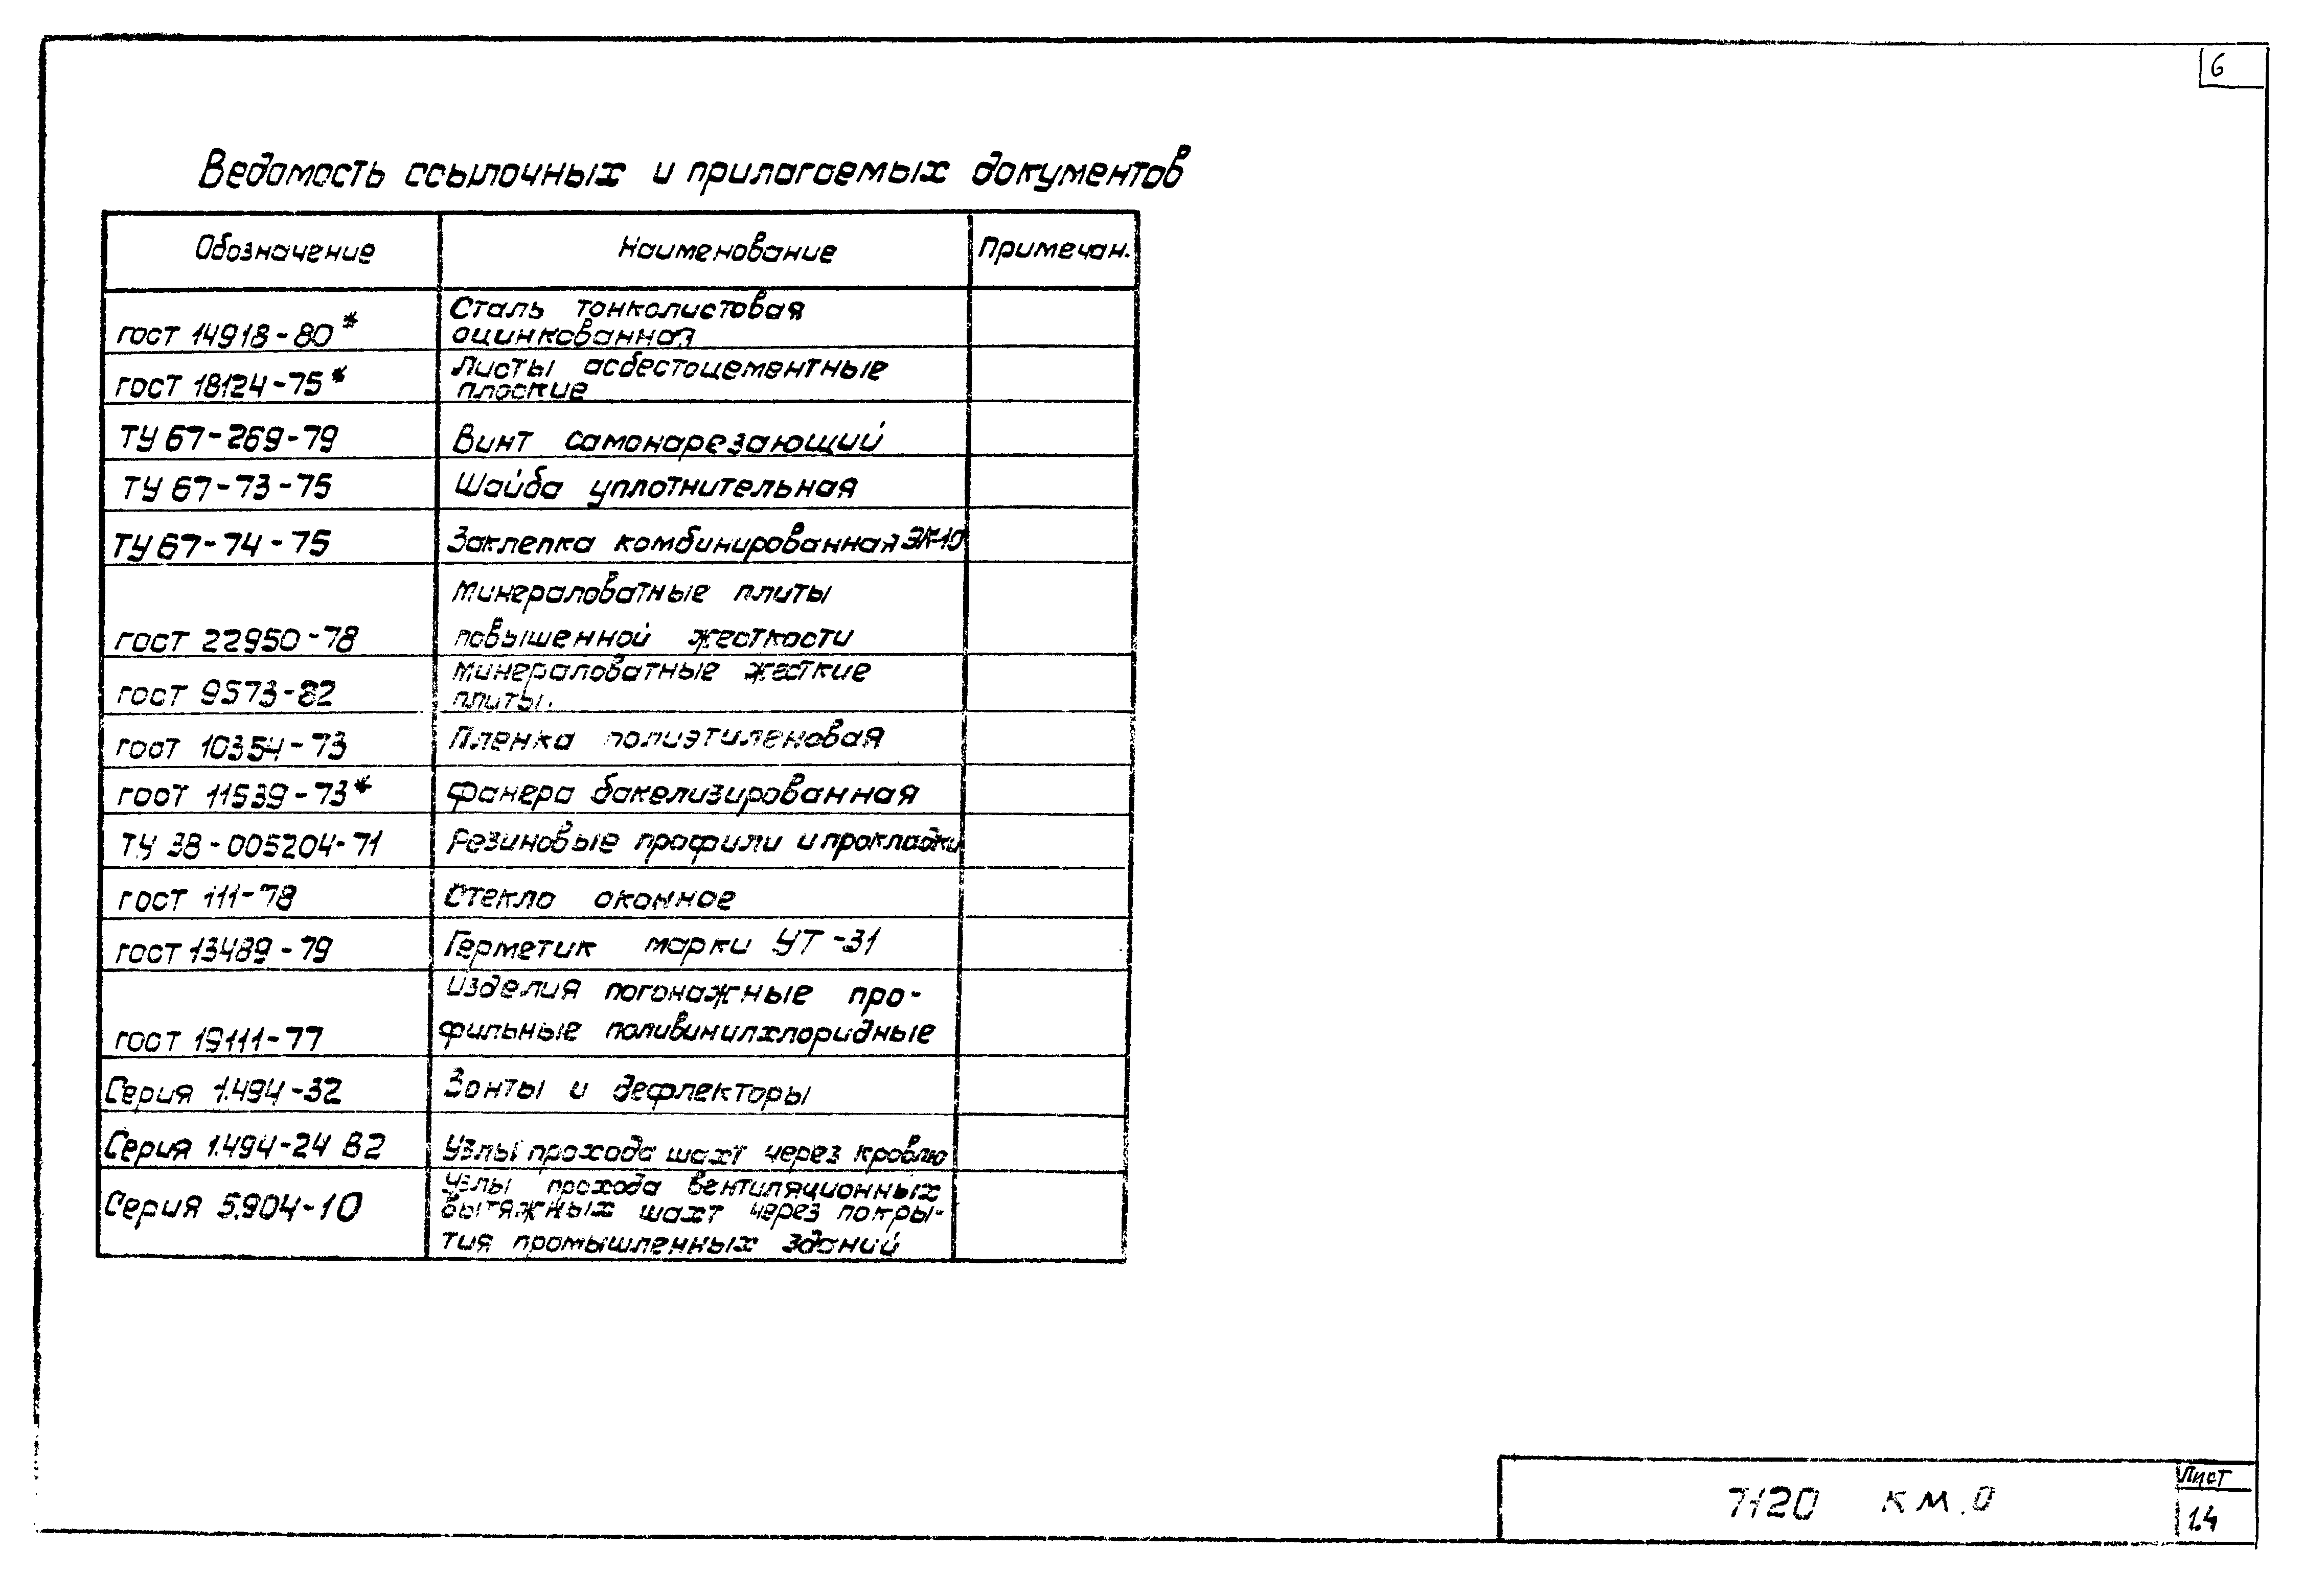 6
Ведомость ссылочных и прилагаемых документов
Обозначение Наименование Примечан.
гост 14918-80* Сталь тонколистовая
оцинкованная
гост 18124-75* Листы асбестоцементные
плоские
ТУ 67-269-79 Винт самонарезающий
ТУ 67-73-75 Шайба уплотнительная
ТУ 67-74-75 Заклепка комбинированная ЗК-10
Минераловатные плиты
гост 22950-78 повышенной жесткости
Минераловатные жесткие
гост 9573-82 плиты.
гост 10354-73 Пленка полиэтиленовая
гост 11539-73* Фанера бакелизированная
ТУ 38-005204-71 Резиновые профили и прокладки
гост 111-78 Стекло оконное
гост 13489-79 Герметик марки УТ-31
Изделия погонажные про-
гост 19111-77 фильные поливинилхлоридные
Серия 1.494-32 Зонты и дефлекторы
Серия 1.494-24 В2 Узлы прохода шахт через кровлю
Узлы прохода вентиляционных
Серия 5.904-10 вытяжных шахт через покры-
тия промышленных зданий
7120 км.0
Лист
1.4